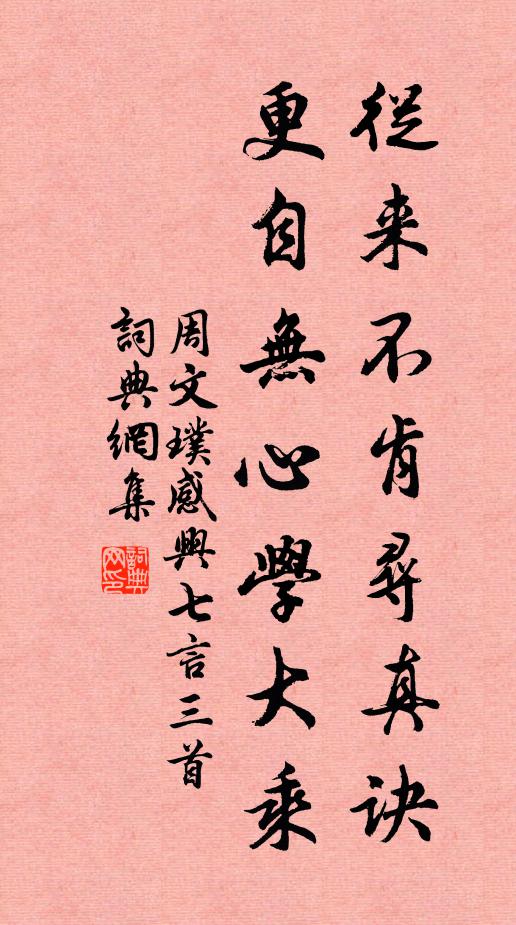 從来不肯尋真訣
更自無心學大乘
周文璞感興七言三首
詞典網集
詞典网印